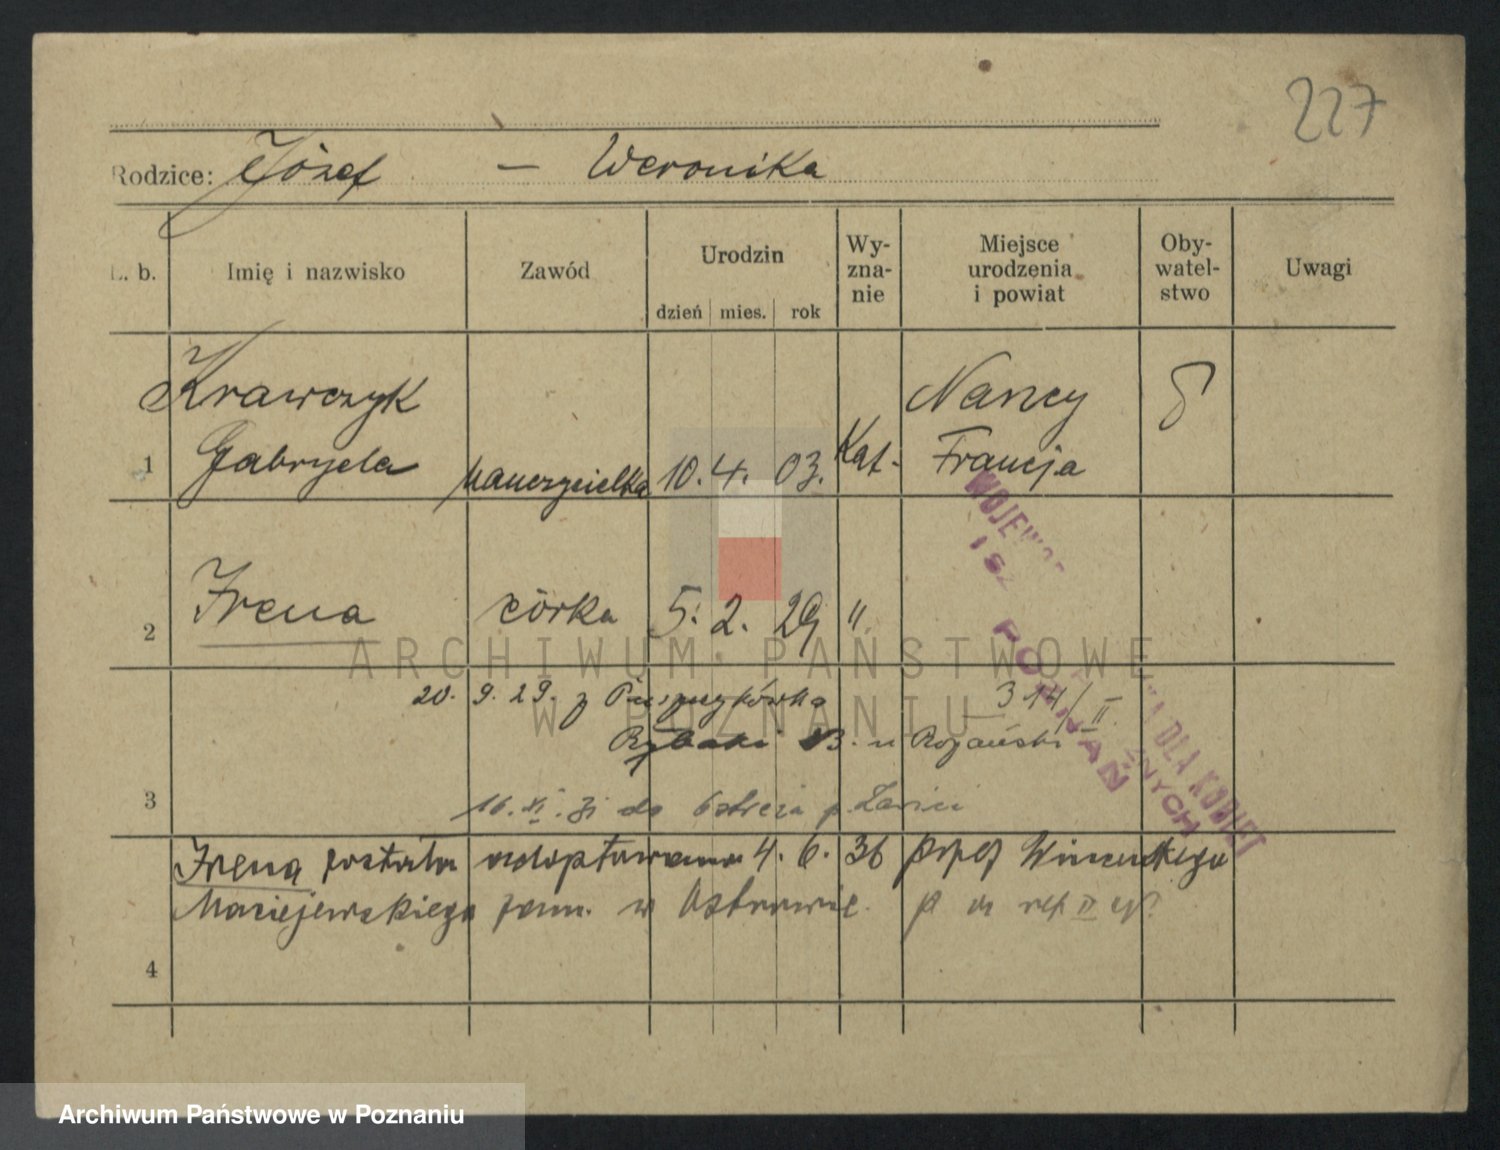 227
Rodzice: Józef — Weronika
L. b. Imię i nazwisko Zawód Urodzin dzień mies. rok Wy-zna-nie Miejsce urodzenia i powiat Oby-watel-stwo Uwagi
Krawczyk Nancy
1 Gabryela nauczycielka 10. 4. 03. Kat. Francja
2 Irena córka 5. 2. 29 "
20. 9. 29. z 314/II.
Rybaki u Rogański
3 16. XI. 31 do
Irena została adoptowana 4. 6. 36 przez Wincentego
Maciejewskiego zam. w Ostrowie.
4
WOJEWÓDZ
POZNAŃ
DLA KOBIET
ARCHIWUM PAŃSTWOWE
W POZNANIU
Archiwum Państwowe w Poznaniu